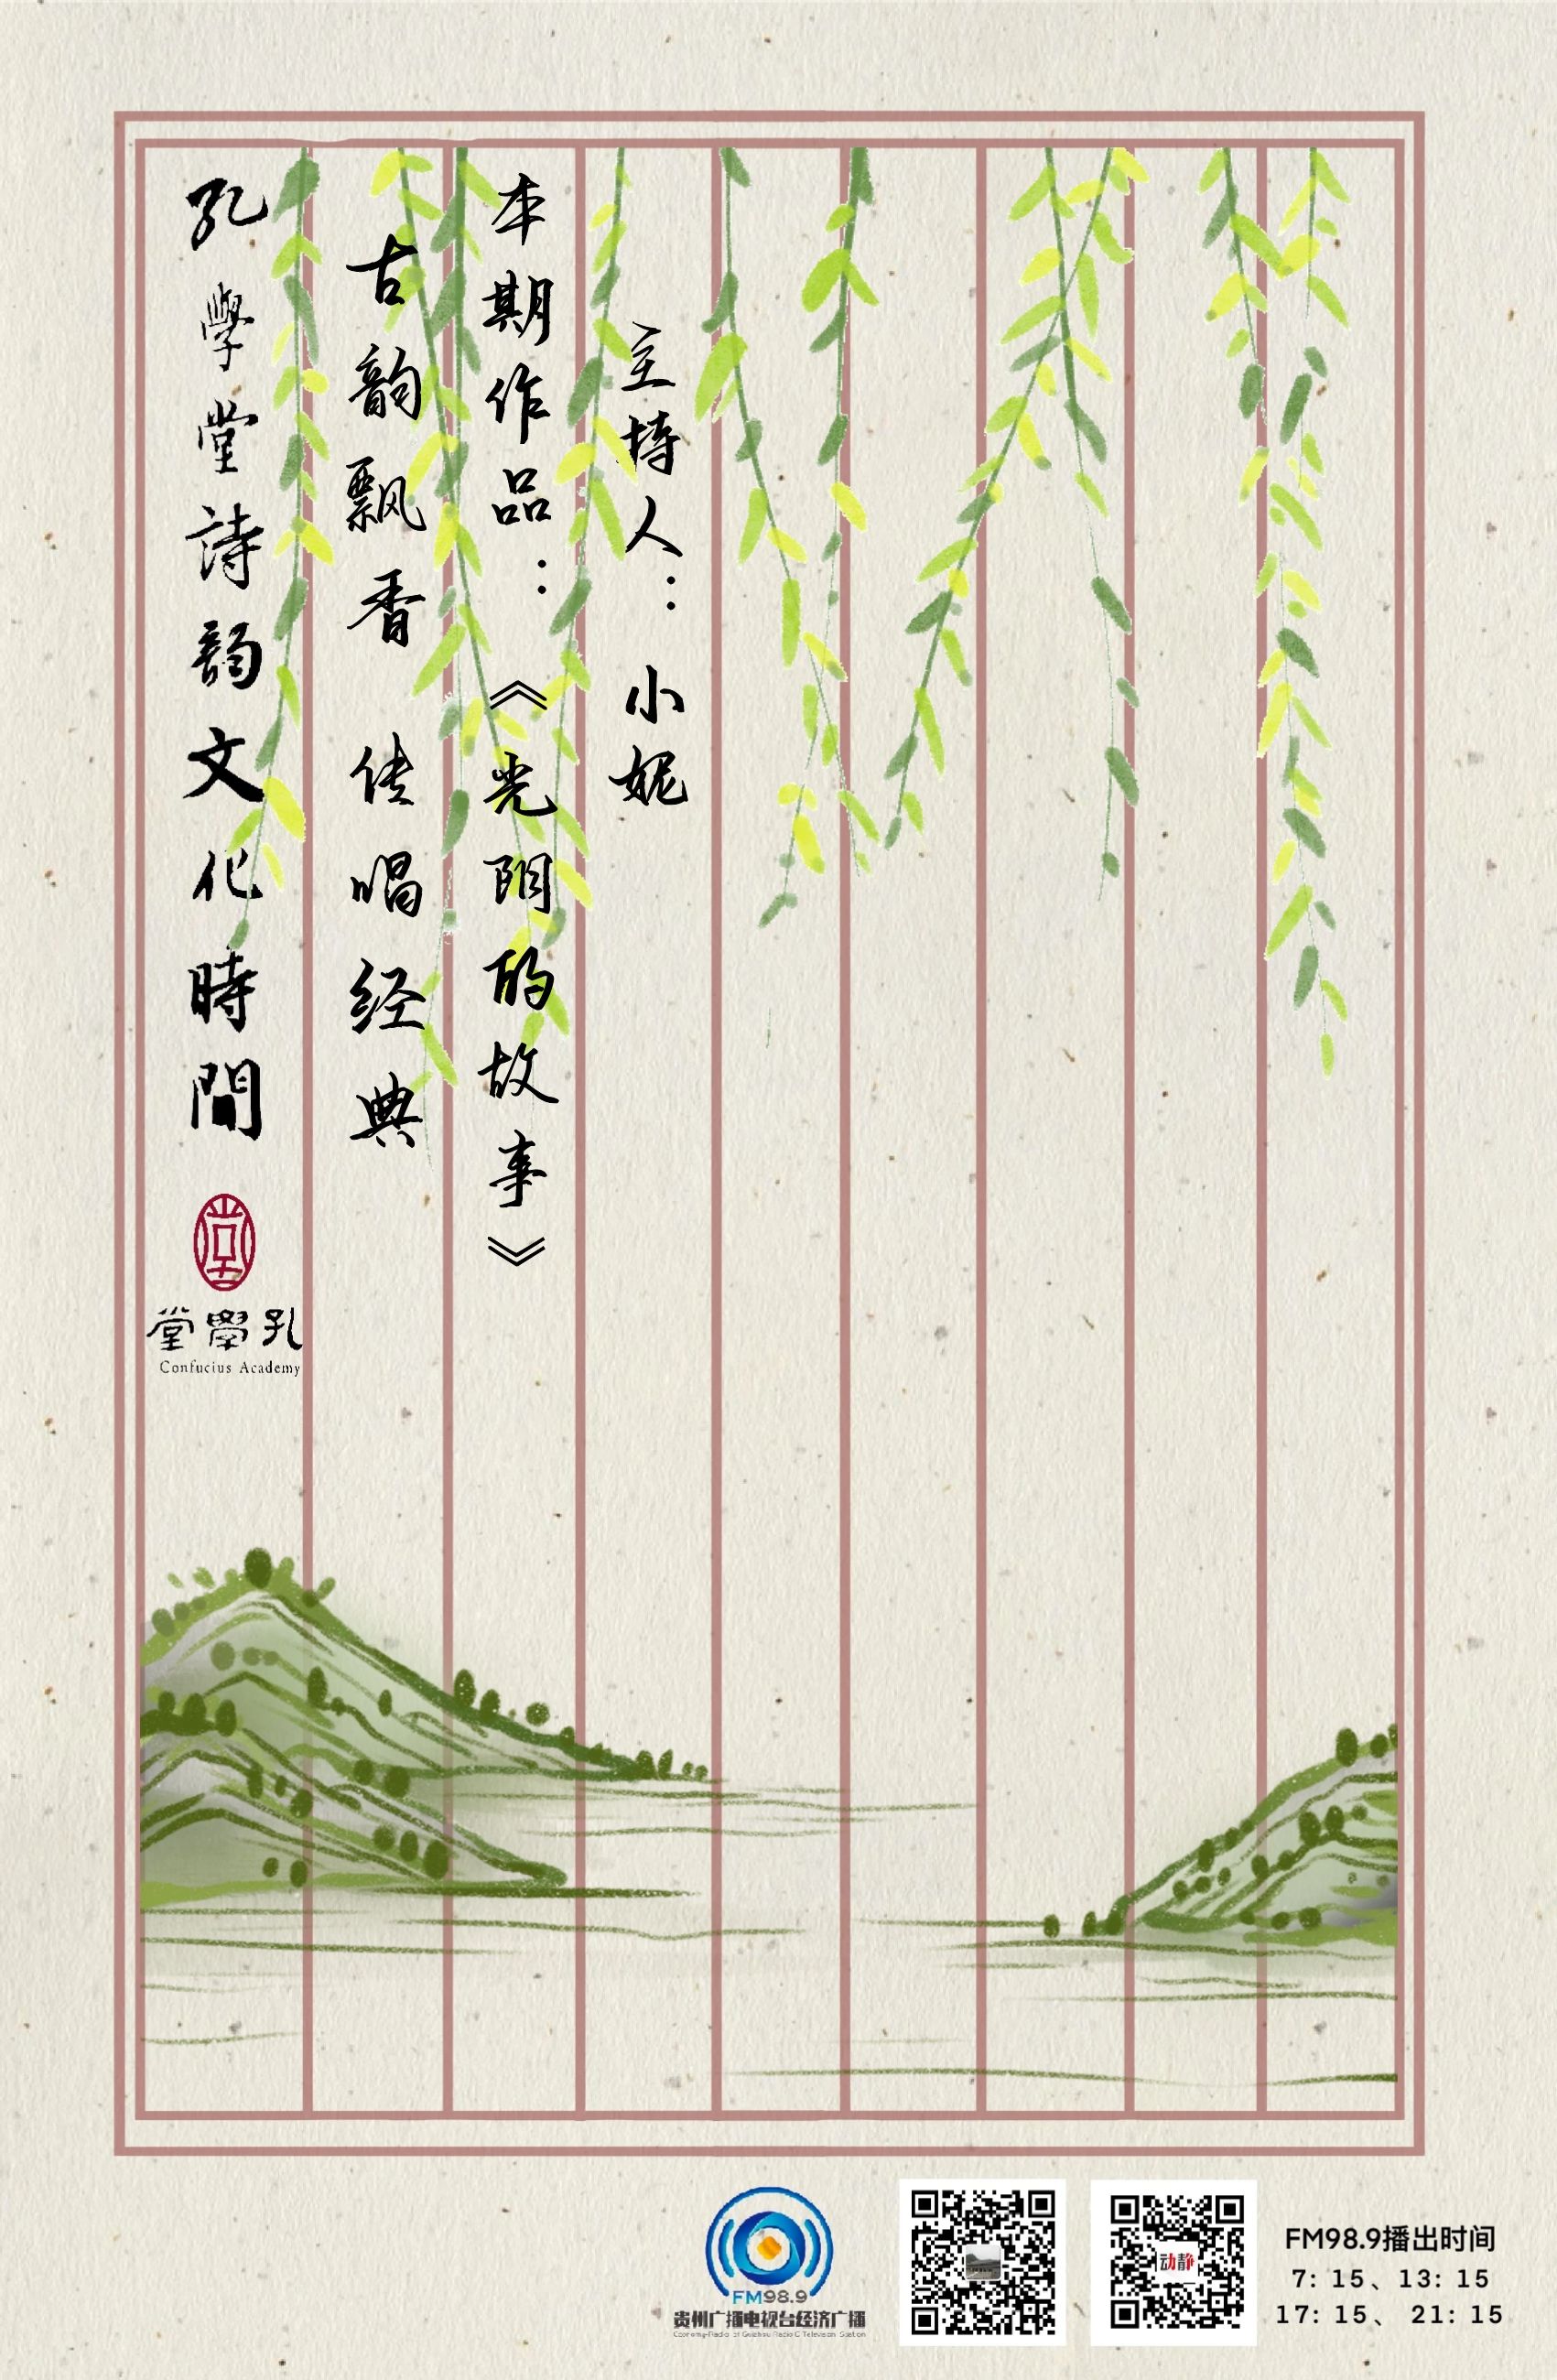 孔學堂詩韵文化時間
古韵飘香 传唱经典
本期作品：《光阴的故事》
主持人：小妮
堂學孔
Confucius Academy
FM98.9
贵州广播电视台经济广播
动静
FM98.9播出时间
7: 15、13: 15
17: 15、 21: 15